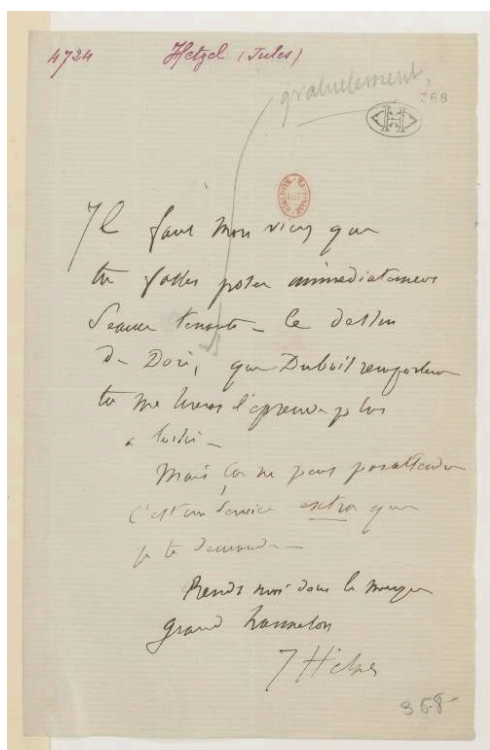 4724 Hetzel (Jules)
gratuitement,
368
Il faut mon vieux que
tu fasses poser immédiatement
séance tenante – le dessin
de Doré, que Dubuil remportera
tu me livreras l'épreuve plus
à loisir –
Mais ça ne peut pas attendre
C'est un service extra que
je te demande –
Rends moi donc le
grand hanneton
J Hetzel
358